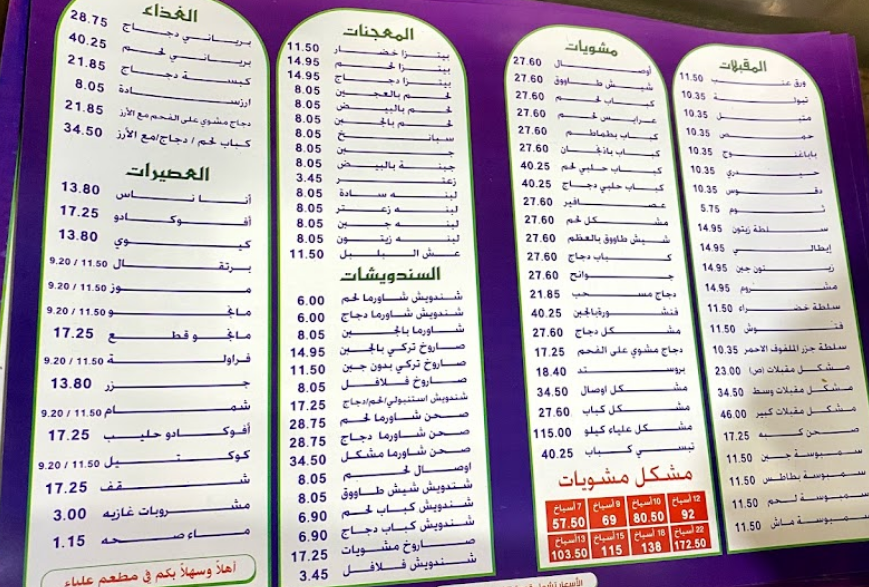 المقبلات
ورق عنب 11.50
تبولة 10.35
متبل 10.35
حمص 10.35
باباغنوج 10.35
حيدري 10.35
دقوس 10.35
ثوم 5.75
سلطة زيتون 14.95
إيطالي 14.95
زيتون جبن 14.95
مشروم 14.95
سلطة خضراء 11.50
فتوش 11.50
سلطة جزر الملفوف الاحمر 10.35
مشكل مقبلات (ص) 23.00
مشكل مقبلات وسط 34.50
مشكل مقبلات كبير 46.00
صحن كبه 17.25
سمبوسة جبن 11.50
سمبوسة بطاطس 11.50
سمبوسة لحم 11.50
سمبوسة ماش 11.50
مشويات
أوصال 27.60
شيش طاووق 27.60
كباب لحم 27.60
عرايس لحم 27.60
كباب بطماطم 27.60
كباب باذنجان 27.60
كباب حلبي لحم 40.25
كباب حلبي دجاج 40.25
عصافير 27.60
مشكل لحم 27.60
شيش طاووق بالعظم 27.60
كباب دجاج 27.60
جوانح 27.60
دجاج مسحب 21.85
فنشورة بالجبن 40.25
مشكل دجاج 27.60
دجاج مشوي على الفحم 17.25
بروستد 18.40
مشكل اوصال 34.50
مشكل كباب 27.60
مشكل علياء كيلو 115.00
تبسي كباب 40.25
مشكل مشويات
12 أسياخ 10 أسياخ 9 أسياخ 7 أسياخ
92 80.50 69 57.50
22 أسياخ 18 أسياخ 15 أسياخ 13 أسياخ
172.50 138 115 103.50
المعجنات
بيتزا خضار 11.50
بيتزا لحم 14.95
بيتزا دجاج 14.95
لحم بالعجين 8.05
لحم بالبيض 8.05
لحم بالجبن 8.05
سبانخ 8.05
جبن 8.05
جبنة بالبيض 8.05
زعتر 3.45
لبنه سادة 8.05
لبنه زعتر 8.05
لبنه جبن 8.05
لبنه زيتون 8.05
عش البلبل 11.50
السندويشات
شندويش شاورما لحم 6.00
شندويش شاورما دجاج 6.00
شاورما بالجبن 8.05
صاروخ تركي بالجبن 14.95
صاروخ تركي بدون جبن 11.50
صاروخ فلافل 8.05
شندويش استنبولي/لحم/دجاج 17.25
صحن شاورما لحم 28.75
صحن شاورما دجاج 28.75
صحن شاورما مشكل 34.50
اوصال لحم 8.05
شندويش شيش طاووق 8.05
شندويش كباب لحم 6.90
شندويش كباب دجاج 6.90
صاروخ مشويات 17.25
شندويش فلافل 3.45
الغذاء
برياني دجاج 28.75
برياني لحم 40.25
كبسة دجاج 21.85
ارزسادة 8.05
دجاج مشوي على الفحم مع الأرز 21.85
كباب لحم / دجاج/مع الأرز 34.50
العصيرات
أناناس 13.80
أفوكادو 17.25
كيوي 13.80
برتقال 11.50 / 9.20
موز 11.50 / 9.20
مانجو 11.50 / 9.20
مانجو قطع 17.25
فراولة 11.50 / 9.20
جزر 13.80
شمام 11.50 / 9.20
أفوكادو حليب 17.25
كوكتيل 11.50 / 9.20
شقف 17.25
مشروبات غازيه 3.00
ماء صحه 1.15
أهلاً وسهلاً بكم في مطعم علياء